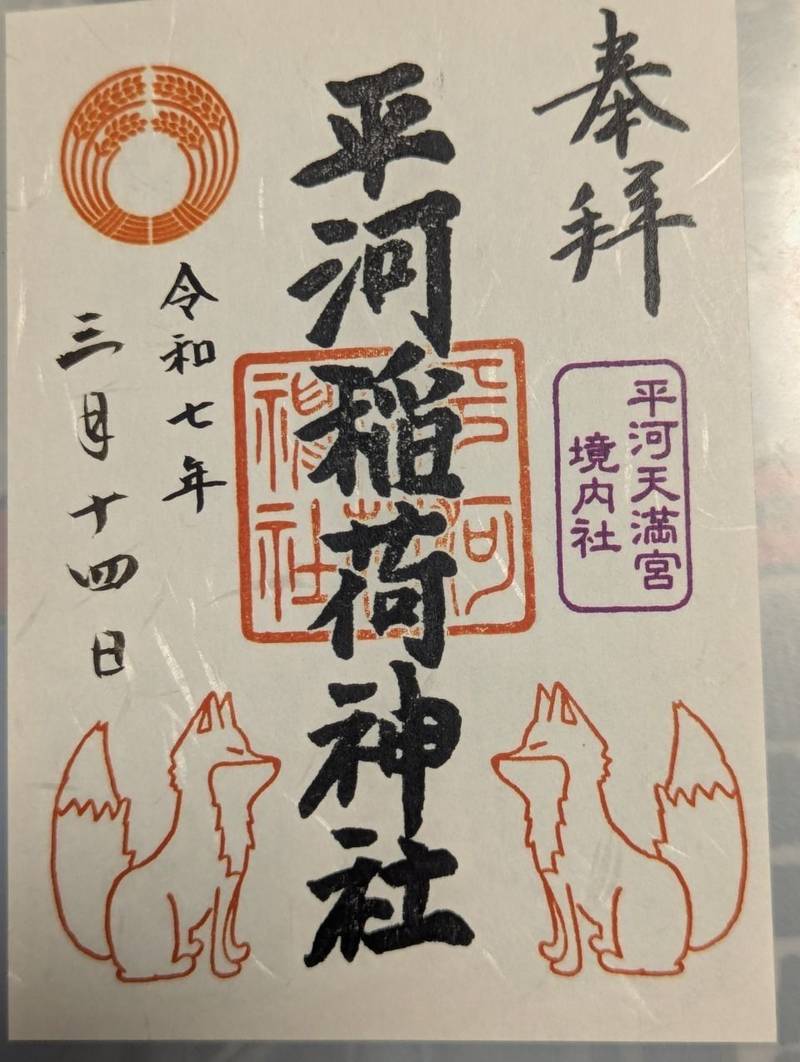 奉拝
平河天満宮
境内社
平河稲荷神社
令和七年
三月十四日